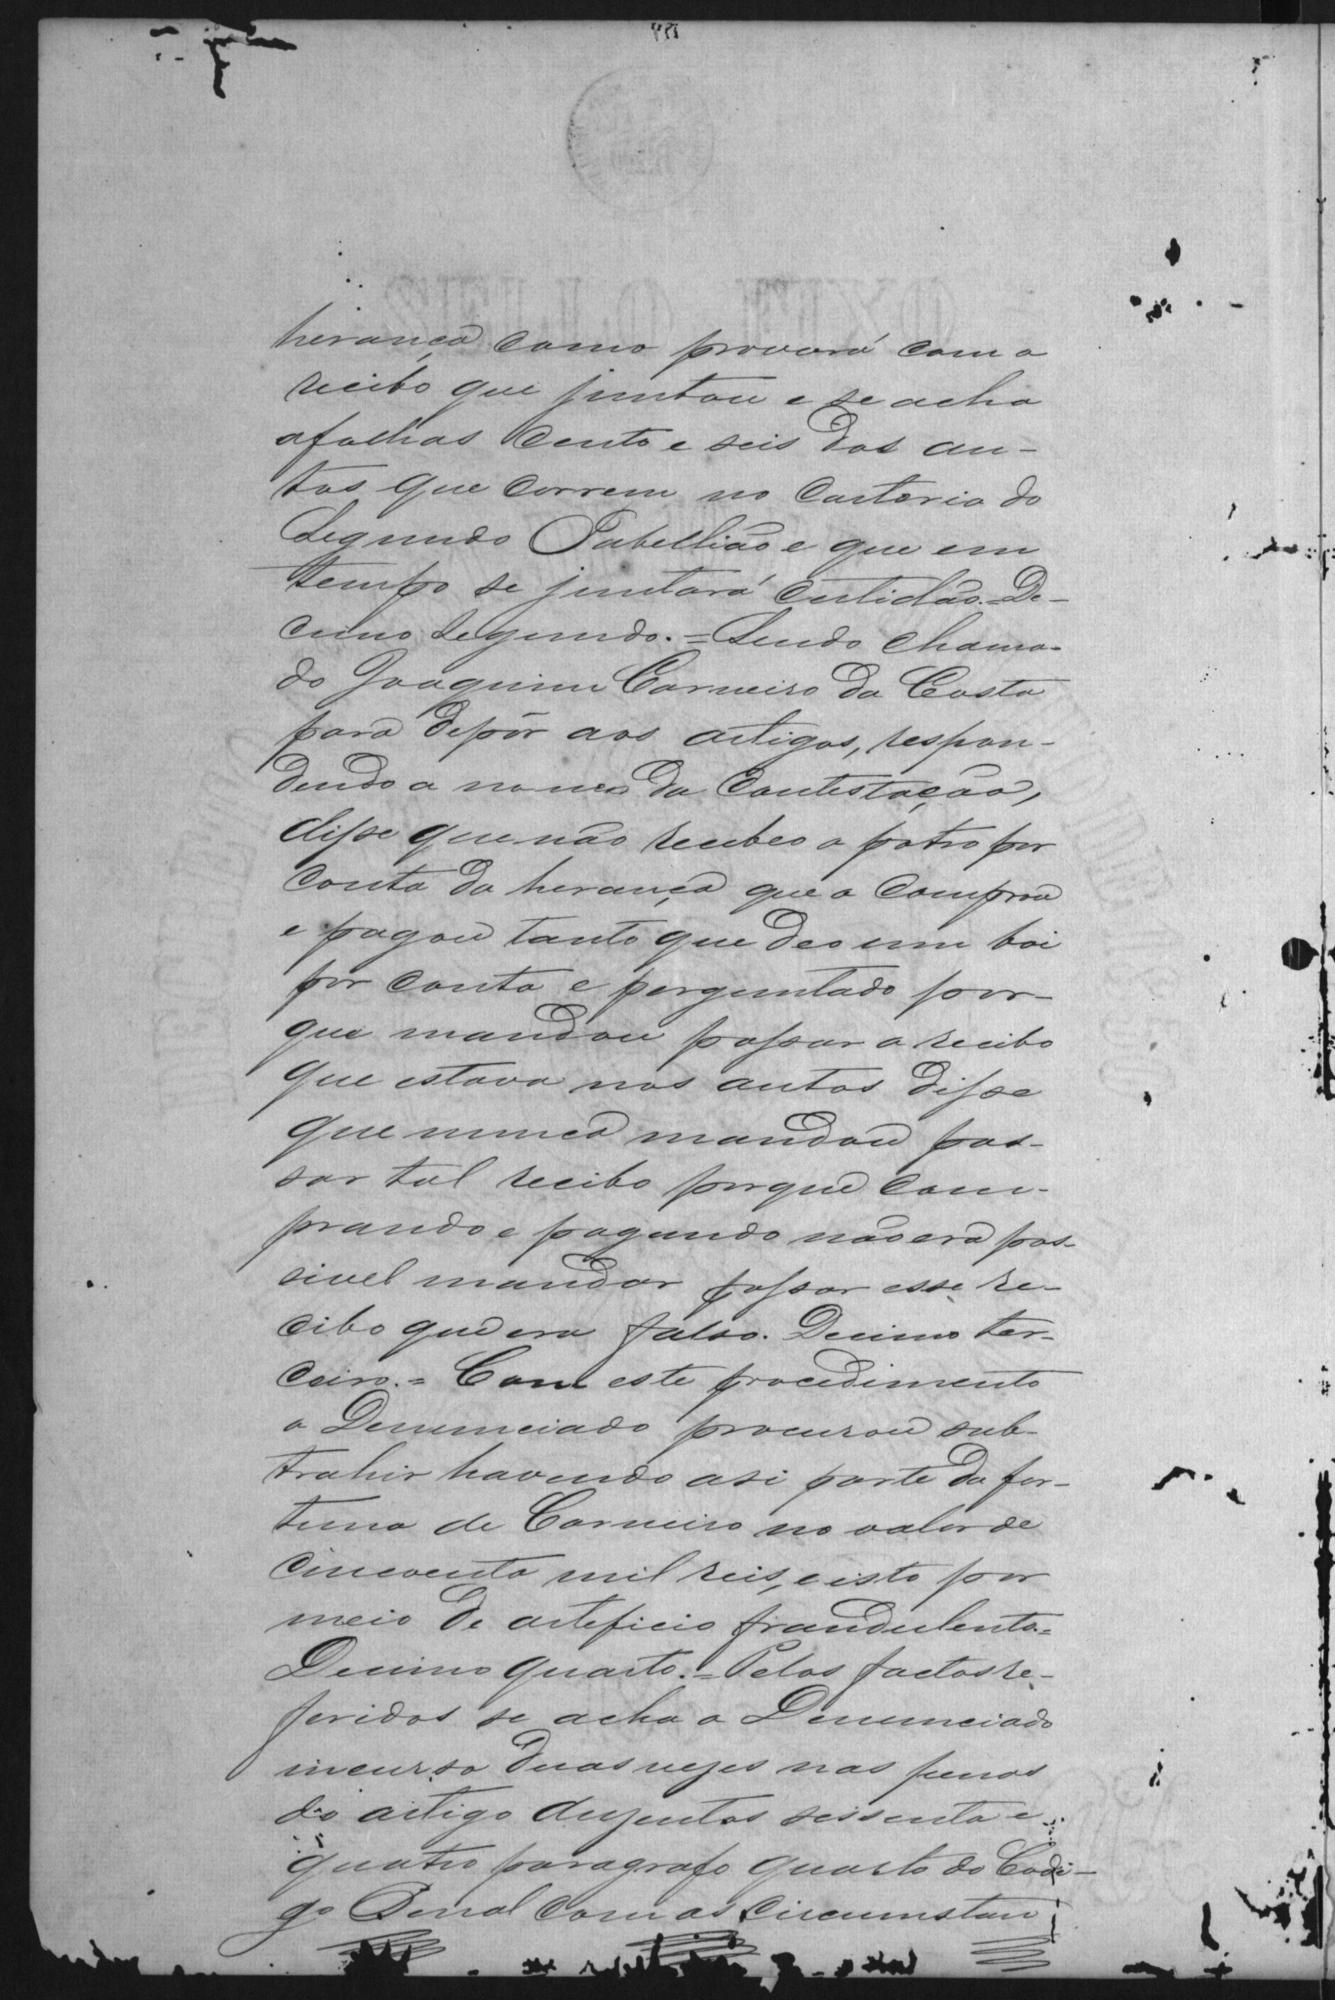 herança como provará com o
recibo que juntou e se acha
afolhas cento e seis dos au-
tos que correm no cartorio do
Segundo Tabellião e que em
tempo se juntará certidão. = De-
cimo segundo. = Sendo chama-
do Joaquim Carneiro da Costa
para depôr aos artigos, respon-
dendo a nona da Contestação,
disse que não recebeo o potro por
conta da herança que o comprou
e pagou tanto que deo um boi
por conta e perguntado por-
que mandou passar o recibo
que estava nos autos disse
que nunca mandou pas-
sar tal recibo porque com-
prando e pagando não era pos-
sivel mandar passar esse re-
cibo que era falso. Decimo ter-
ceiro. = Com este procedimento
o Denunciado procurou sub-
trahir havendo a si parte da for-
tuna de Carneiro no valor de
cincoenta mil reis, e isto por
meio de arteficio fraudulento. =
Decimo quarto. = Pelos factos re-
feridos se acha o Denunciado
incurso duas vezes nas penas
do artigo duzentos sessenta e
quatro paragrafo quarto do Codi-
go Penal com as circumstan